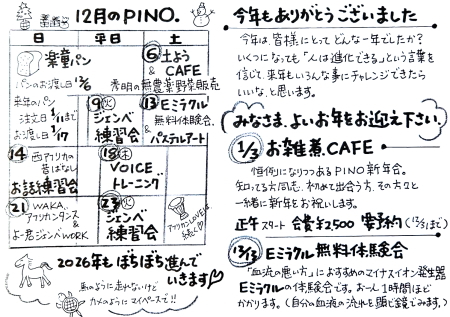 12月のPINO.
日 平日 土
楽童パン
パンのお渡し日12/6
⑥土よう
& CAFE
秀明の無農薬野菜販売
来年のパン
注文日1/11まで
お渡し日1/17
⑨火
ジェンベ
練習会
⑬Eミラクル
無料体験会、
& パステルアート
⑭西アフリカの
昔ばなし
お話練習会
⑱木
VOICE
トレーニング
㉑WAKA.
アフリカンダンス
&
よー君ジェンベWORK
㉓火
ジェンベ
練習会
アフリカLOVEは
続く♡
2026年もぼちぼち進んで
いきます♡
馬のように走れないけど
カメのようにマイペースで!!
今年もありがとうございました
今年は、皆様にとってどんな一年でしたか?
いくつになっても「人は進化できる」という言葉を
信じて、来年もいろんな事にチャレンジできたら
いいな、と思います。
みなさま、よいお年をお迎え下さい。
1/3 お雑煮.CAFE
恒例になりつつあるPINO新年会。
知ってる方同志、初めて出会う方、その方々と
一緒に新年をお祝いします。
正午スタート 会費¥2,500 要予約(12/31まで)
12/13 Eミラクル無料体験会
「血流の悪い方」におすすめのマイナスイオン発生器
Eミラクルの体験会です。お一人1時間ほど
かかります。(自分の血液の流れを顕と鏡でみます。)